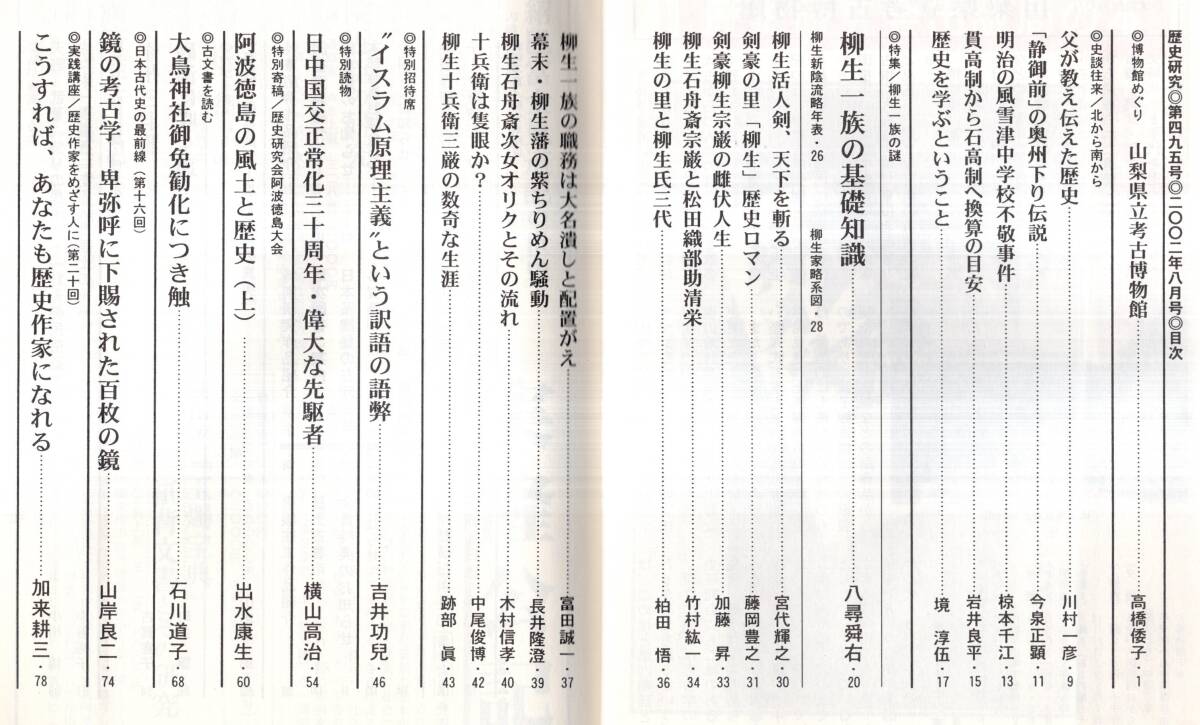 歴史研究◎第四九五号◎二〇〇二年八月号◎目次
◎博物館めぐり 山梨県立考古博物館……高橋倭子・1
◎史談往来／北から南から
父が教え伝えた歴史……川村一彦・9
「静御前」の奥州下り伝説……今泉正顕・11
明治の風雪津中学校不敬事件……椋本千江・13
貫高制から石高制へ換算の目安……岩井良平・15
歴史を学ぶということ……境 淳伍・17
◎特集／柳生一族の謎
柳生一族の基礎知識……八尋舜右・20
柳生新陰流略年表・26 柳生家略系図・28
柳生活人剣、天下を斬る……宮代輝之・30
剣豪の里「柳生」歴史ロマン……藤岡豊之・31
剣豪柳生宗厳の雌伏人生……加藤 昇・33
柳生石舟斎宗厳と松田織部助清栄……竹村紘一・34
柳生の里と柳生氏三代……柏田 悟・36
柳生一族の職務は大名潰しと配置がえ……富田誠一・37
幕末・柳生藩の紫ちりめん騒動……長井隆澄・39
柳生石舟斎次女オリクとその流れ……木村信孝・40
十兵衛は隻眼か?……中尾俊博・42
柳生十兵衛三厳の数奇な生涯……跡部 眞・43
◎特別招待席
〝イスラム原理主義〟という訳語の語弊……吉井功兒・46
◎特別読物
日中国交正常化三十周年・偉大な先駆者……横山高治・54
◎特別寄稿／歴史研究会阿波徳島大会
阿波徳島の風土と歴史(上)……出水康生・60
◎古文書を読む
大鳥神社御免勧化につき触……石川道子・68
◎日本古代史の最前線(第十六回)
鏡の考古学―卑弥呼に下賜された百枚の鏡……山岸良二・74
◎実践講座／歴史作家をめざす人に(第二十回)
こうすれば、あなたも歴史作家になれる……加来耕三・78